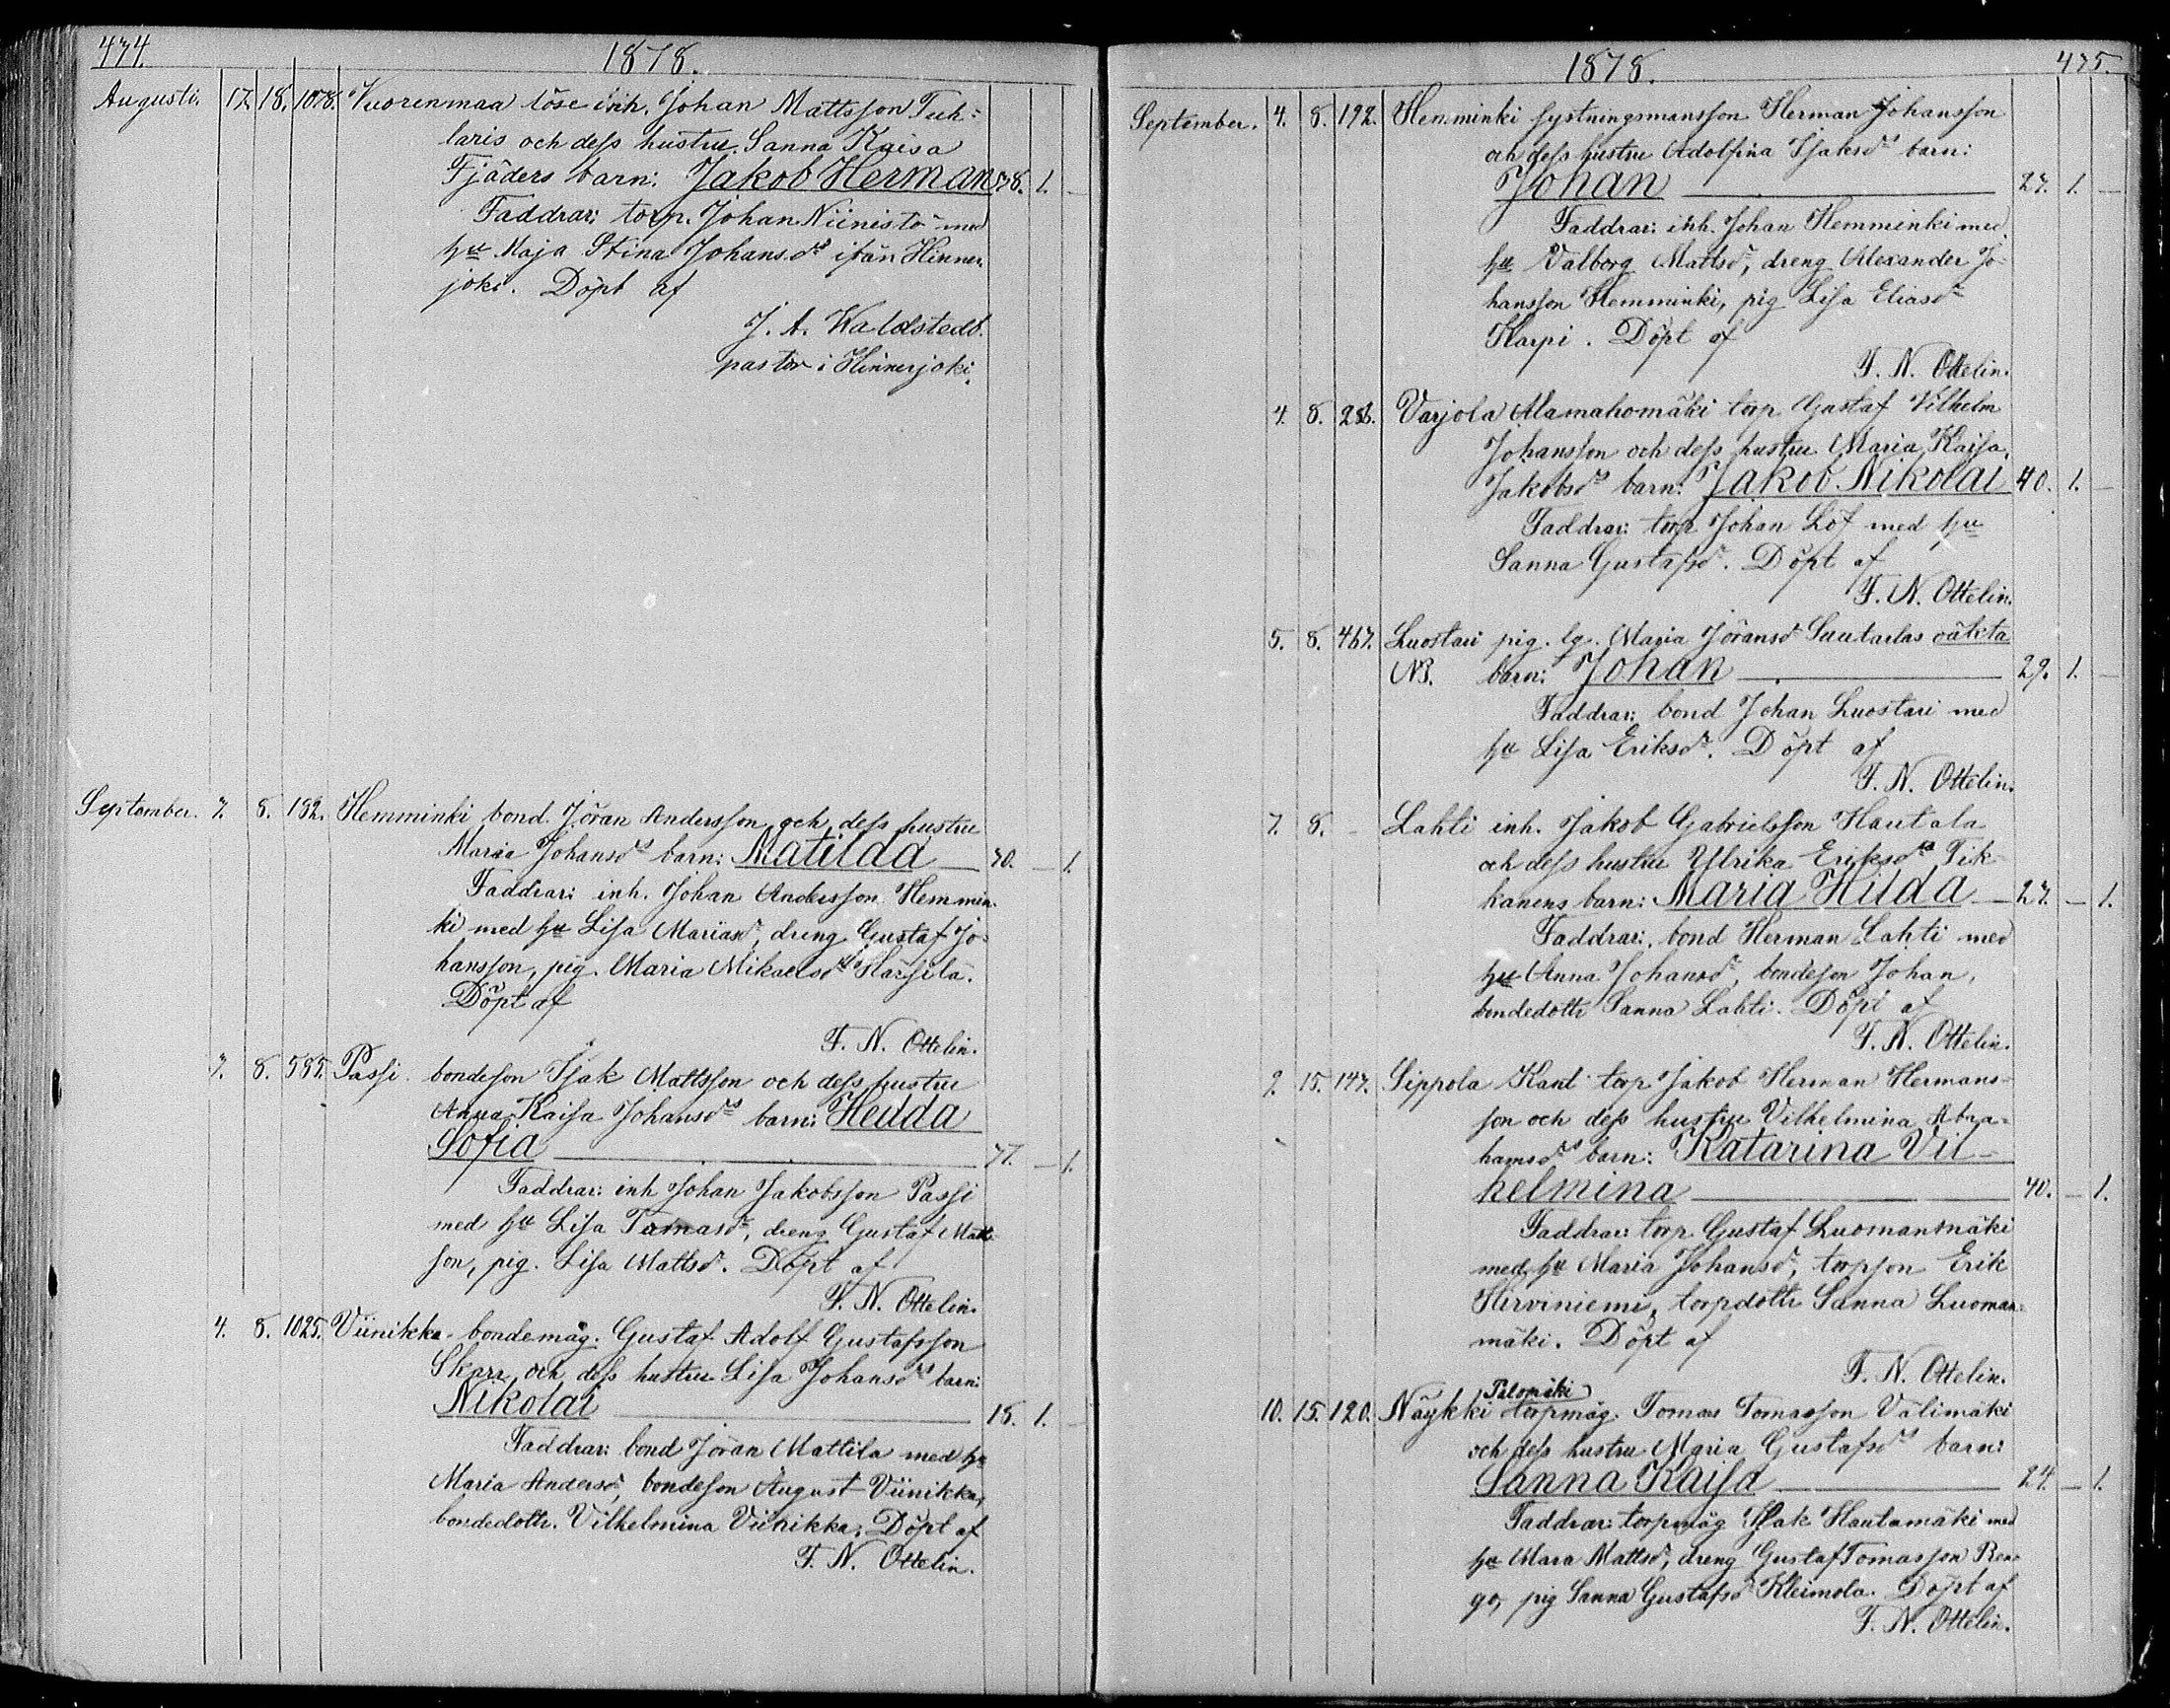 474.
1878.
Augusti. 17. 18. 1078. Vuorenmaa löse inh. Johan Mattsson Tuh-
laris och dess hustru Sanna Kaisa
Fjäders barn: Jakob Herman 38. 1. —
Faddrar: torp. Johan Niinistö med
hu Maja Stina Johansdr ifån Hinner-
joki. Döpt af
J. A. Waldstedt.
pastor i Hinnerjoki.
September. 7. 8. 192. Hemminki bond. Jöran Andersson och dess hustru
Maria Johansdrs barn: Matilda — 30. — 1.
Faddrar: inh. Johan Andersson Hemmin-
ki med hu Lisa Mariasdr, dreng Gustaf Jo-
hansson, pig. Maria Mikaelsdr Härsilä.
Döpt af
F. N. Ottelin.
7. 8. 585. Passi bondeson Isak Mattsson och dess hustru
Anna Kaisa Johansdrs barn: Hedda
Sofia — 1.
Faddrar: inh Johan Jakobsson Passi
med hu Lisa Tomasdr, dreng Gustaf Matts-
son, pig. Lisa Mattsdr. Döpt af
F. N. Ottelin.
4. 8. 1025. Viinikka bondemåg. Gustaf Adolf Gustafsson
Skarp och dess hustru Lisa Johansdrs barn:
Nikolai 18. 1. —
Faddrar: bond Jöran Mattila med hu
Maria Andersdr, bondeson August Viinikka,
bondedottr. Vilhelmina Viinikka. Döpt af
F. N. Ottelin.
1878.
475.
September. 4. 8. 192. Hemminki systningsmansson Herman Johansson
och dess hustru Adolfina Isaksdrs barn:
Johan 27. 1. —
Faddrar: inh. Johan Hemminki med
hu Valborg Mattsdr, dreng Alexander Jo-
hansson Hemminki, pig Lisa Eliasdr
Karpi. Döpt af
F. N. Ottelin.
4. 8. 286. Varjola Alamahomäki torp Gustaf Vilhelm
Johansson och dess hustru Maria Kaisa
Jakobsdrs barn: Jakob Nikolai 40. 1. —
Faddrar: torp Johan Löf med hu
Sanna Gustafsdr. Döpt af
F. N. Ottelin.
5. 8. 467. Luostari pig. lg. Maria Jöransdr Suutarlas oäkta
NB. barn: Johan 29. 1. —
Faddrar: bond Johan Luostari med
hu Lisa Eriksdr. Döpt af
F. N. Ottelin.
7. 8. — Lahti inh. Jakob Gabrielsson Hautala
och dess hustru Ulrika Eriksdr Pik-
kanens barn: Maria Hilda — 27. — 1.
Faddrar: bond Herman Lahti med
hu Anna Johansdr, bondeson Johan,
bondedottr Sanna Lahti. Döpt af
F. N. Ottelin.
9. 15. 147. Sippola Kant torp Jakob Herman Hermans-
son och dess hustru Vilhelmina Abra-
hamsdrs barn: Katarina Vil-
helmina 40. — 1.
Faddrar: torp. Gustaf Luomanmäki
med hu Maria Johansdr, torpson Erik
Hirviniemi, torpdottr Sanna Luoman-
mäki. Döpt af
F. N. Ottelin.
Palomäki
10. 15. 120. Näykki torpmåg. Tomas Tomasson Välimäki
och dess hustru Maria Gustafsdrs barn:
Sanna Kaisa 24. — 1.
Faddrar: torpmåg Isak Hautamäki med
hu Maria Mattsdr, dreng Gustaf Tomasson Ren-
go, pig Sanna Gustafsdr Kleimola. Döpt af
F. N. Ottelin.